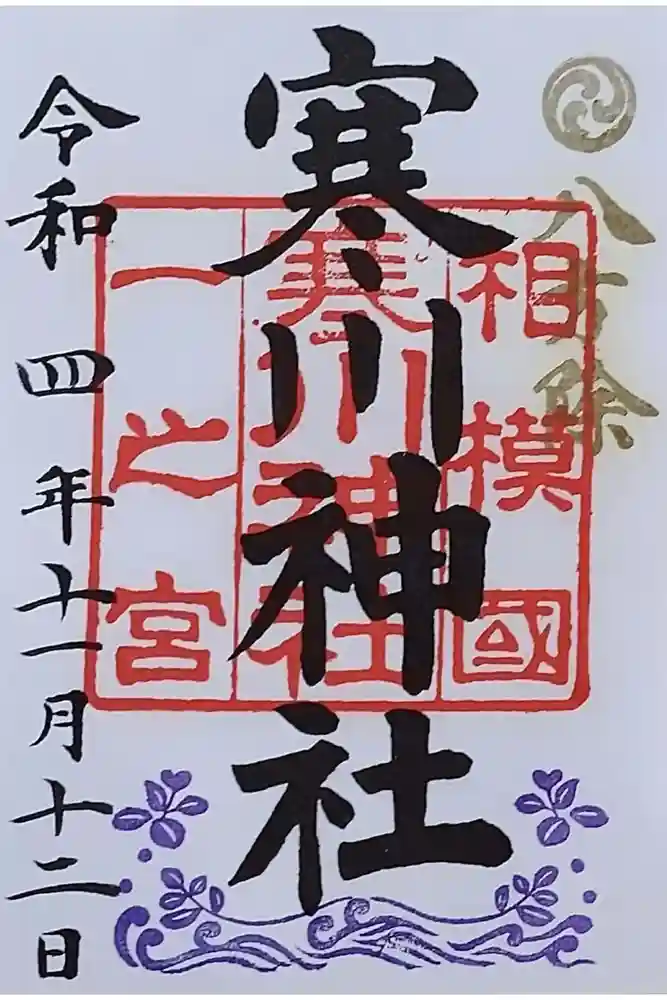 八方除
相模國
寒川神社
一之宮
寒川神社
令和四年十一月十二日